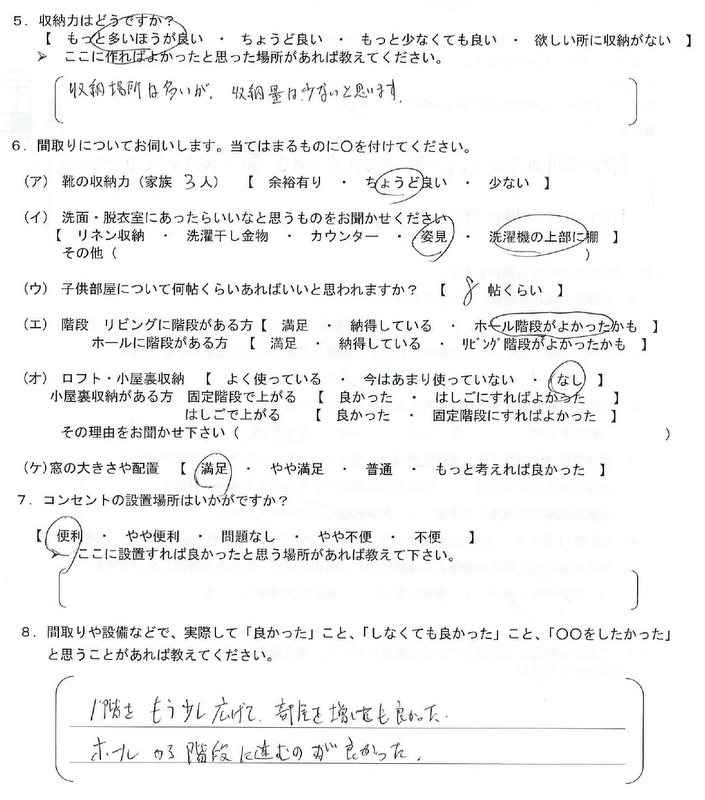 5．収納力はどうですか？
【　もっと多いほうが良い　・　ちょうど良い　・　もっと少なくても良い　・　欲しい所に収納がない　】
➢　ここに作ればよかったと思った場所があれば教えてください。
収納場所は多いが、収納量は少ないと思います。
6．間取りについてお伺いします。当てはまるものに〇を付けてください。
（ア）　靴の収納力（家族　3人）　【　余裕有り　・　ちょうど良い　・　少ない　】
（イ）　洗面・脱衣室にあったらいいなと思うものをお聞かせください
【　リネン収納　・　洗濯干し金物　・　カウンター　・　姿見　・　洗濯機の上部に棚　】
その他（　　　　　　　　　　　　　　　　　　　　）
（ウ）　子供部屋について何帖くらいあればいいと思われますか？　【　8　帖くらい　】
（エ）　階段　リビングに階段がある方【　満足　・　納得している　・　ホール階段がよかったかも　】
ホールに階段がある方　【　満足　・　納得している　・　ﾘﾋﾞﾝｸﾞ階段がよかったかも　】
（オ）　ロフト・小屋裏収納　【　よく使っている　・　今はあまり使っていない　・　なし　】
小屋裏収納がある方　固定階段で上がる　【　良かった　・　はしごにすればよかった　】
はしごで上がる　【　良かった　・　固定階段にすればよかった　】
その理由をお聞かせ下さい（　　　　　　　　　　　　　　　　　　　　）
（ケ）窓の大きさや配置　【　満足　・　やや満足　・　普通　・　もっと考えれば良かった　】
7．コンセントの設置場所はいかがですか？
【　便利　・　やや便利　・　問題なし　・　やや不便　・　不便　】
➢　ここに設置すれば良かったと思う場所があれば教えて下さい。
8．間取りや設備などで、実際して「良かった」こと、「しなくても良かった」こと、「〇〇をしたかった」
と思うことがあれば教えてください。
1階をもう少し広げて、部屋を増やせも良かった.
ホールから階段に進むのが良かった。